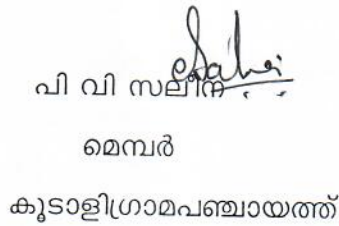 പി വി സലീന
മെമ്പർ
കൂടാളിഗ്രാമപഞ്ചായത്ത്